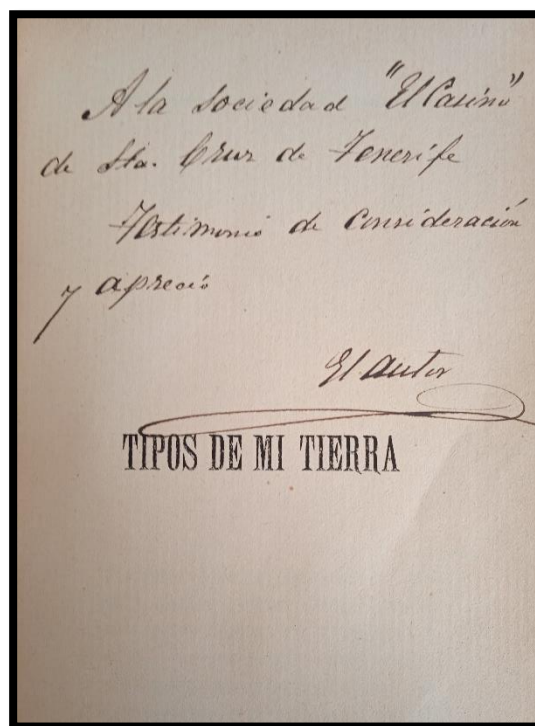 A la sociedad "El Casino"
de Sta. Cruz de Tenerife
Testimonio de consideración
y aprecio
El autor
TIPOS DE MI TIERRA